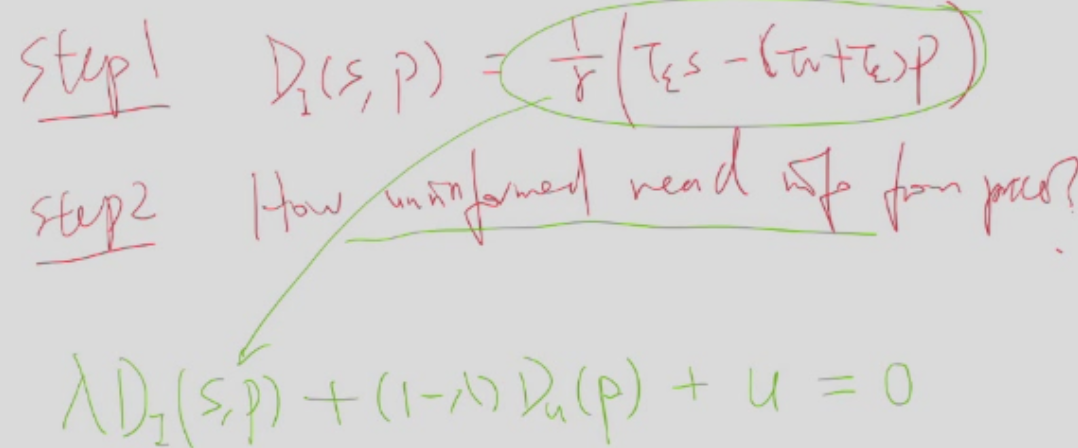 Step1 D_I(s,p) = 1/γ (τ_ε s - (τ_v+τ_ε)p)
step2 How uninformed read info from prices?
λD_I(s,p) + (1-λ) D_u(p) + u = 0